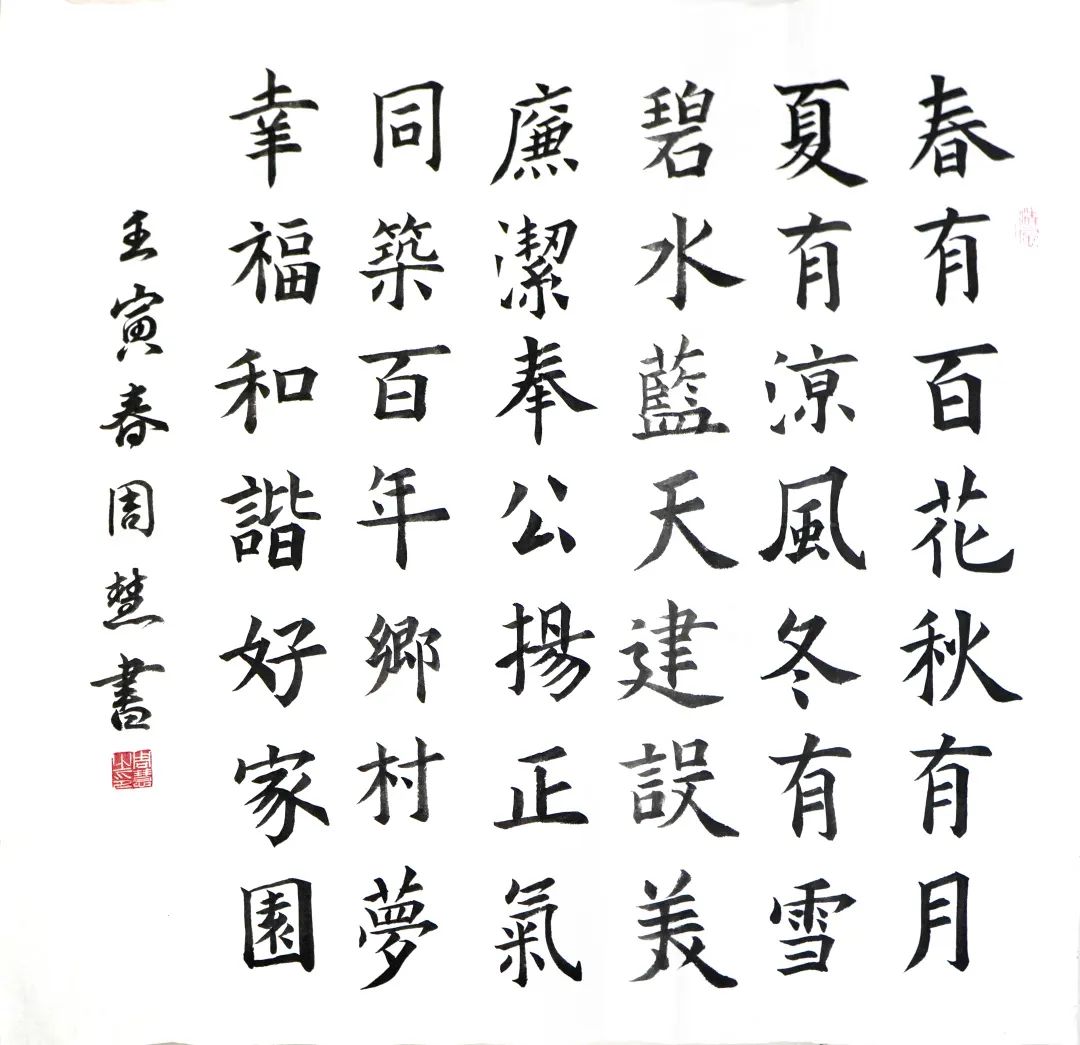 春有百花秋有月
夏有涼風冬有雪
碧水藍天建設美
廉潔奉公揚正氣
同築百年鄉村夢
幸福和諧好家園
壬寅春周慧書